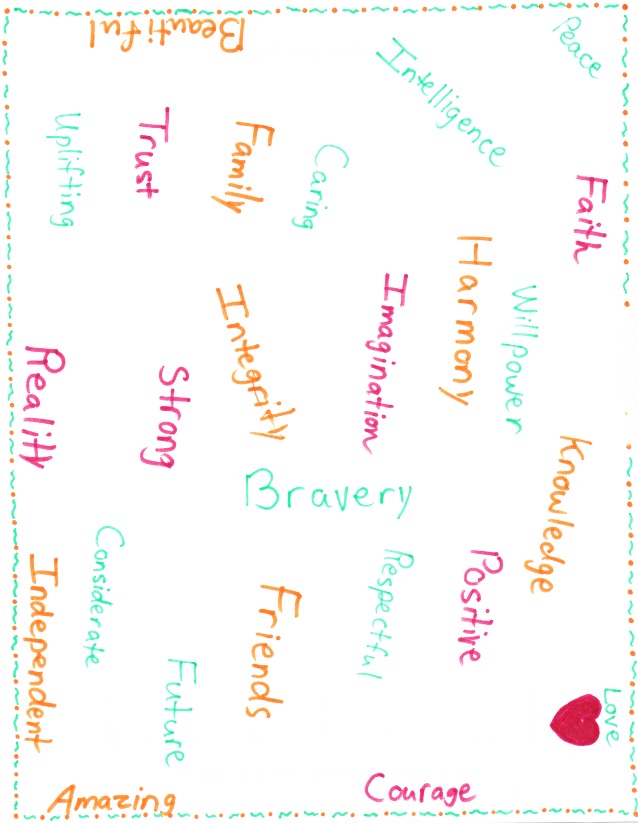 Beautiful
Intelligence
Peace
Uplifting
Trust
Family
Caring
Faith
Harmony
Imagination
Willpower
Integrity
Reality
Strong
Knowledge
Bravery
Considerate
Independent
Respectful
Positive
Friends
Future
Love
Courage
Amazing